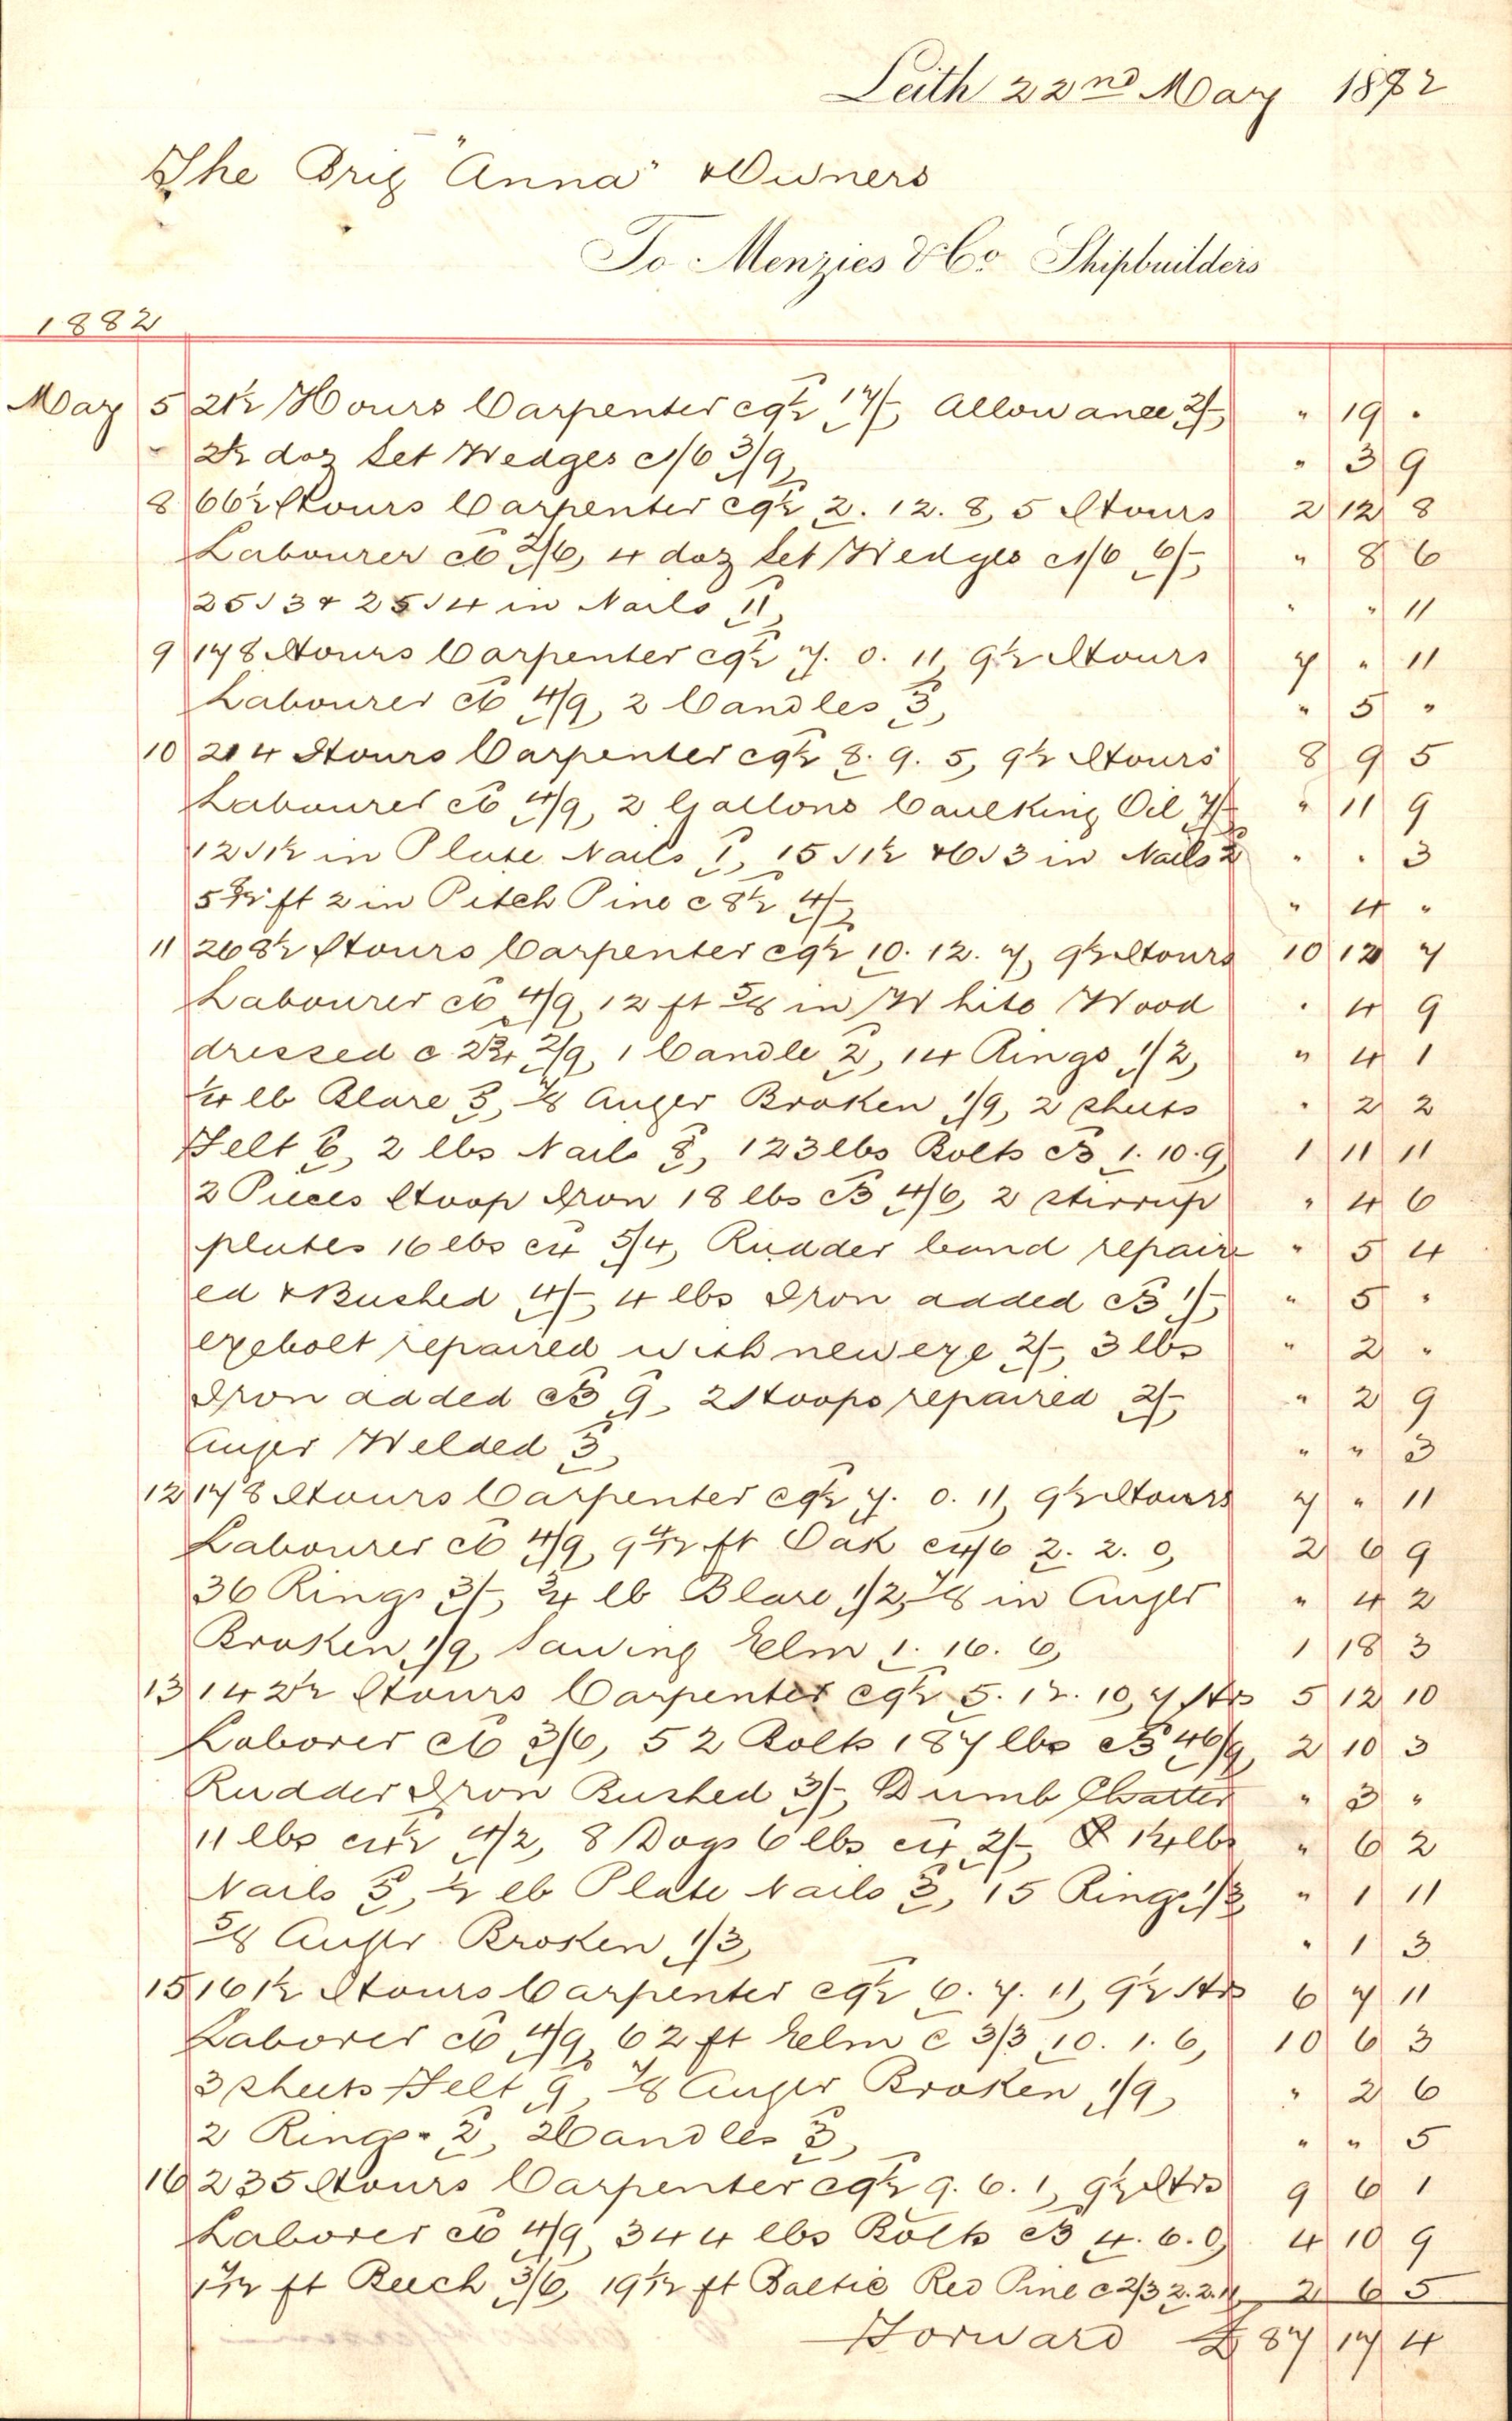 Leith 22nd May 1882
The Brig "Anna" & Owners
To Menzies & Co Shipbuilders
1882
May 5 21½ Hours Carpenter @ 9½ 17/-, Allowance 2/-, " 19 "
" 2½ doz Set Wedges @ 1/6 3/9, " 3 9
8 66½ Hours Carpenter @ 9½ 2. 12. 8, 5 Hours 2 12 8
Labourer @ 6 2/6, 4 doz Set Wedges @ 1/6 6/-, " 8 6
25 / 3 & 25 / 4 in Nails 11, " " 11
9 178 Hours Carpenter @ 9½ 7. 0. 11, 9½ Hours 7 " 11
Labourer @ 6 4/9, 2 Candles 3, " 5 "
10 214 Hours Carpenter @ 9½ 8. 9. 5, 9½ Hours 8 9 5
Labourer @ 6 4/9, 2 Gallons Caulking Oil 7/- " 11 9
12 / 1½ in Plate Nails 1, 15 / 1½ & 6 / 3 in Nails 2 " " 3
5 ft 2 in Pitch Pine @ 8½ 4/-, " 4 "
11 268½ Hours Carpenter @ 9½ 10. 12. 7, 9½ Hours 10 12 7
Labourer @ 6 4/9, 12 ft ⅝ in White Wood " 4 9
dressed @ 2¾ 2/9, 1 Candle 2, 14 Rings 1/2, " 4 1
¼ lb Blare 5, ⅞ Auger Broken 1/9, 2 sheets " 2 2
Felt 6, 2 lbs Nails 8, 123 lbs Bolts @ 3 1. 10. 9, 1 11 11
2 Pieces Hoop Iron 18 lbs @ 3 4/6, 2 stirrup " 4 6
plates 16 lbs @ 4 5/4, Rudder band repair " 5 4
ed & Bushed 4/-, 4 lbs Iron added @ 3 1/-, " 5 "
eyebolt repaired with new eye 2/-, 3 lbs " 2 "
Iron added @ 3 9, 2 Hoops repaired 2/-, " 2 9
Auger Welded 3, " " 3
12 178 Hours Carpenter @ 9½ 7. 0. 11, 9½ Hours 7 " 11
Labourer @ 6 4/9, 9 4/12 ft Oak @ 4/6 2. 2. 0, 2 6 9
36 Rings 3/-, ¾ lb Blare 1/2, ⅞ in Auger " 4 2
Broken 1/9, Sawing Elm 1. 16. 6, 1 18 3
13 142½ Hours Carpenter @ 9½ 5. 12. 10, 7 Hrs 5 12 10
Laborer @ 6 3/6, 52 Bolts 187 lbs @ 3 46/9, 2 10 3
Rudder Iron Bushed 3/-, Dumb Chatter " 3 "
11 lbs @ 4½ 4/2, 8 Dogs 6 lbs @ 4 2/-, 1¼ lbs " 6 2
Nails 5, ½ lb Plate Nails 3, 15 Rings 1/3, " 1 11
⅝ Auger Broken 1/3, " 1 3
15 161½ Hours Carpenter @ 9½ 6. 7. 11, 9½ Hrs 6 7 11
Laborer @ 6 4/9, 62 ft Elm @ 3/3 10. 1. 6, 10 6 3
3 sheets Felt 9, ⅞ Auger Broken 1/9, " 2 6
2 Rings 2, 2 Candles 3, " " 5
16 235 Hours Carpenter @ 9½ 9. 6. 1, 9½ Hrs 9 6 1
Laborer @ 6 4/9, 344 lbs Bolts @ 3 4. 6. 0, 4 10 9
1 7/12 ft Beech 3/6, 19 1/12 ft Baltic Red Pine @ 2/3 2. 2. 11, 2 6 5
Forward £ 87 17 4